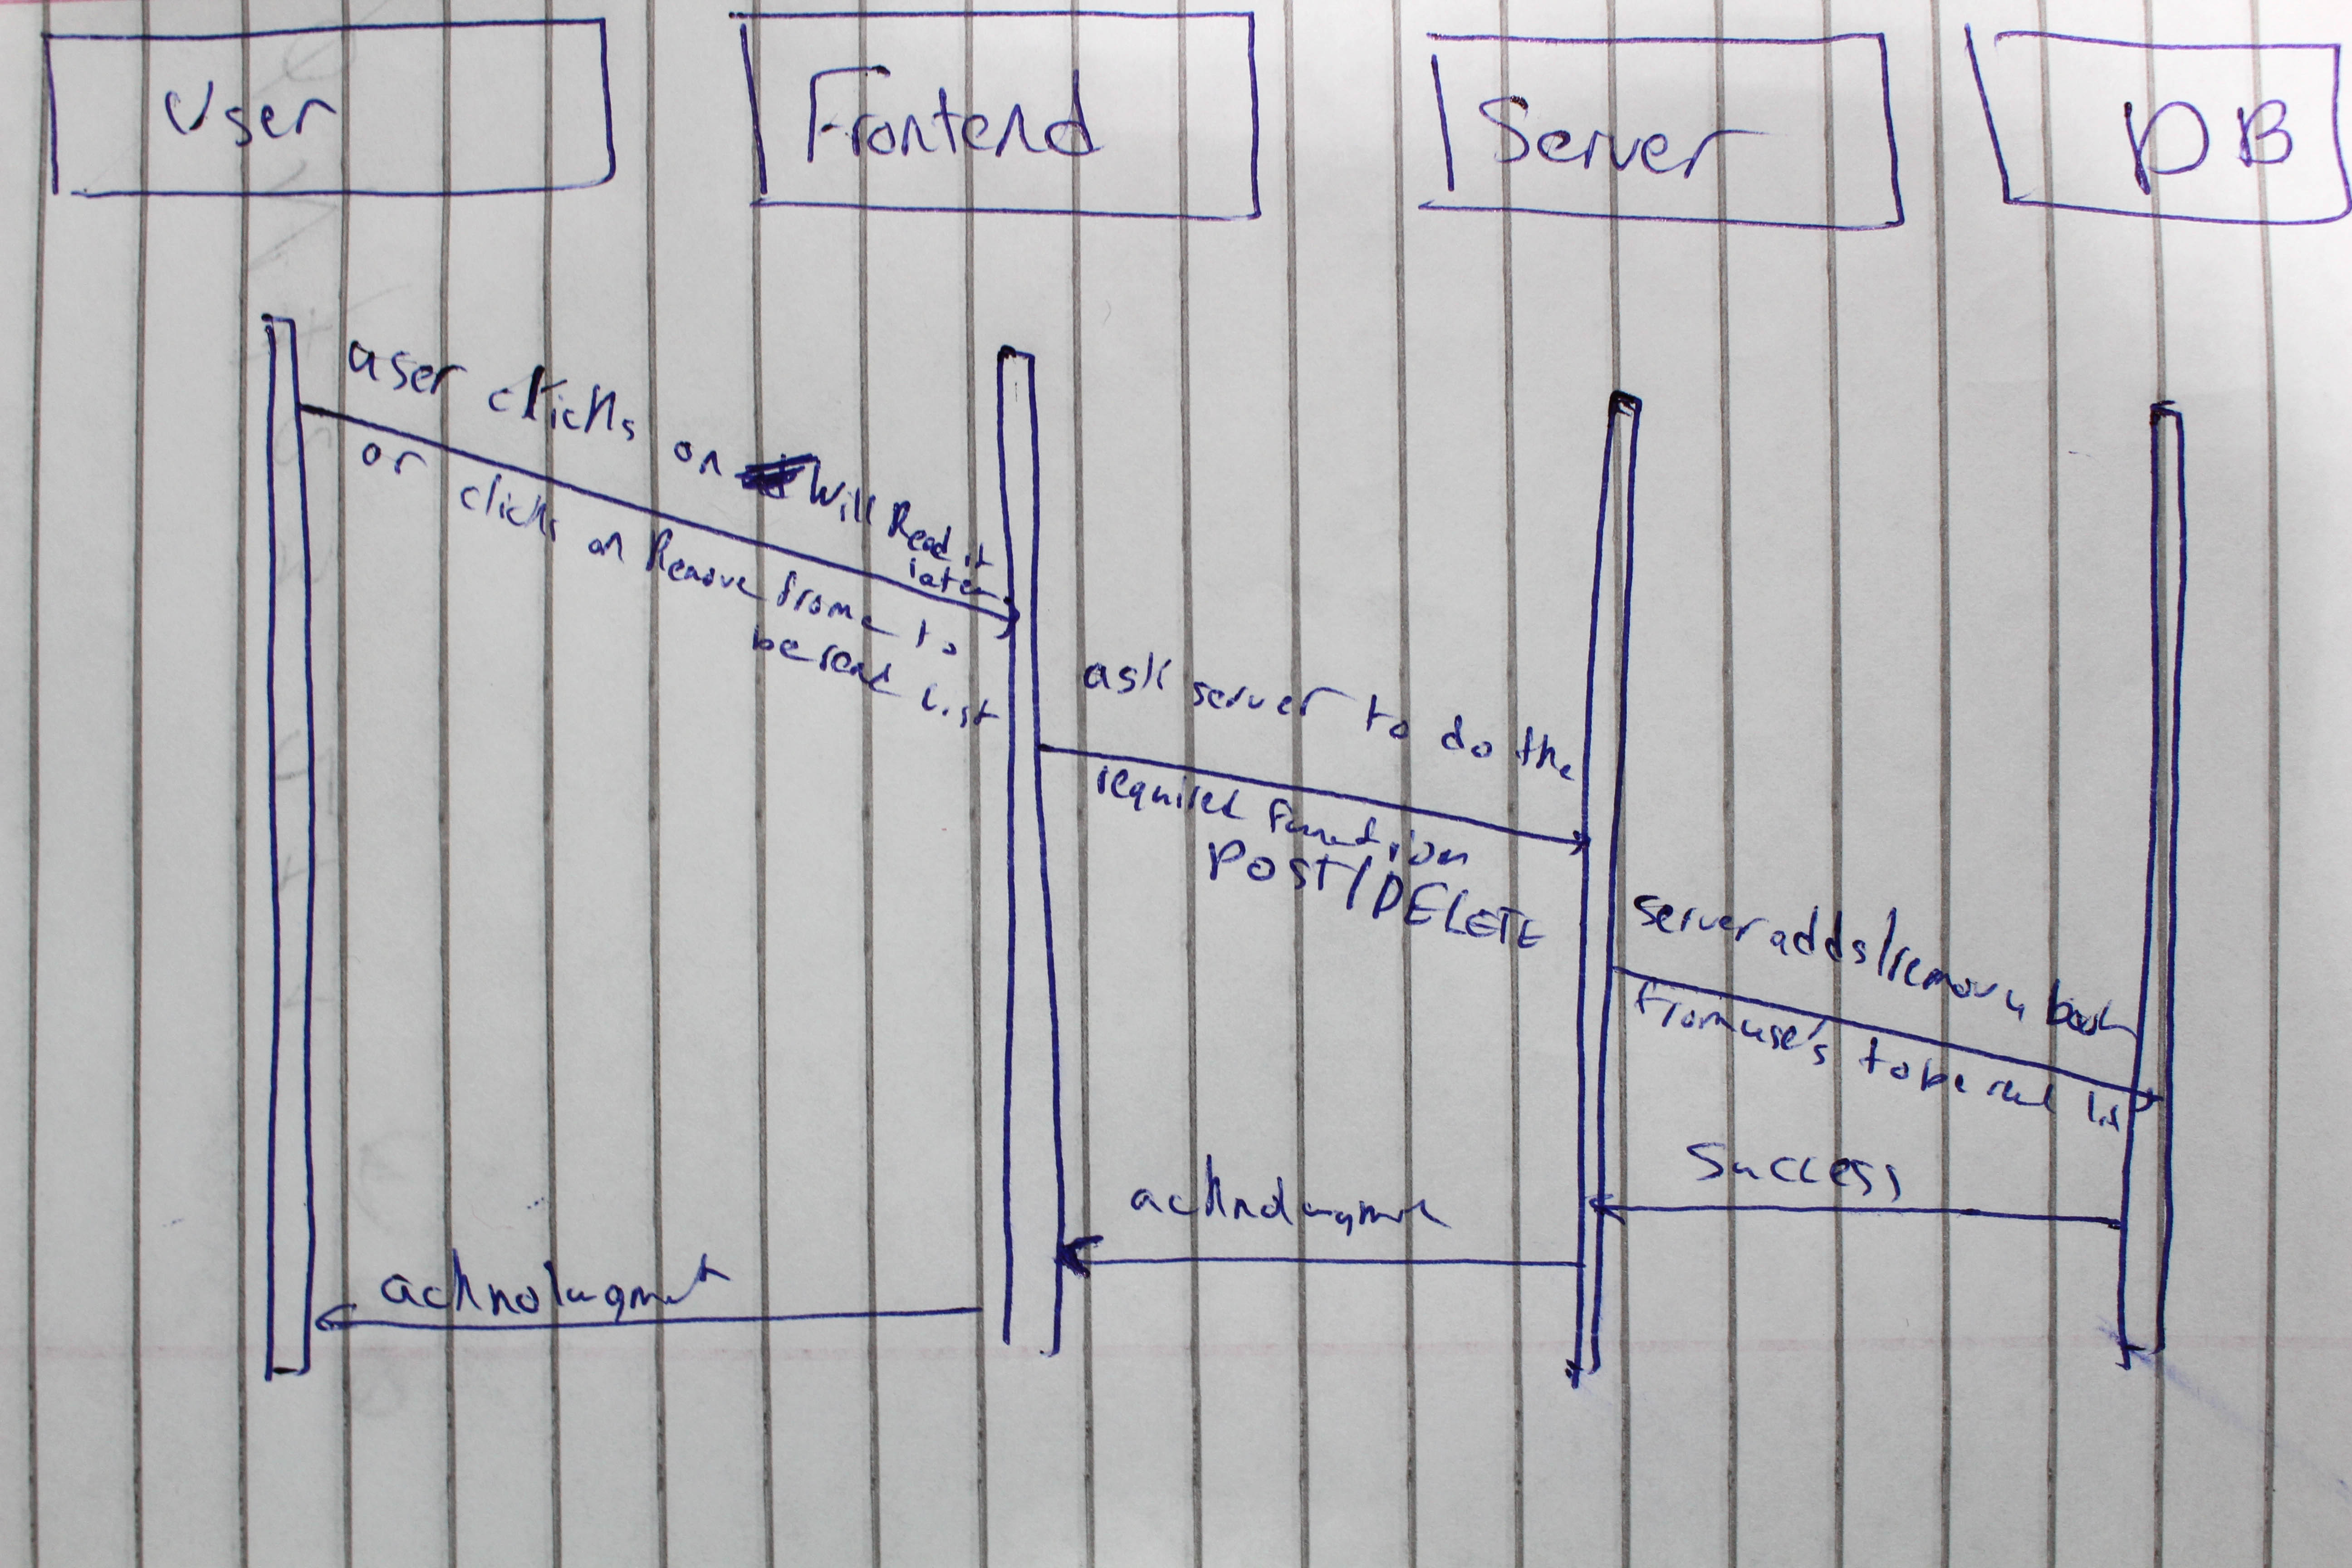 User
Frontend
Server
DB
user clicks on Will Read it
later
or clicks on Remove from to
be read list
ask server to do the
required function
POST/DELETE
server adds/remove book
from use's to be read lis
Success